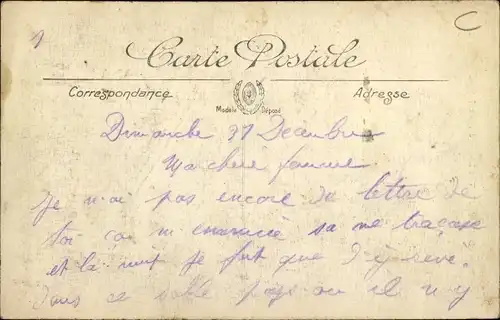 Carte Postale
Correspondance
Adresse
Modèle Déposé
Dimanche 31 Decembre
Ma chere femme
je n ai pas encore du lettre de
toi ca m ennui sa me tracasse
et la nuit je fait que d y reve
Dans ce sable pays ou il n y